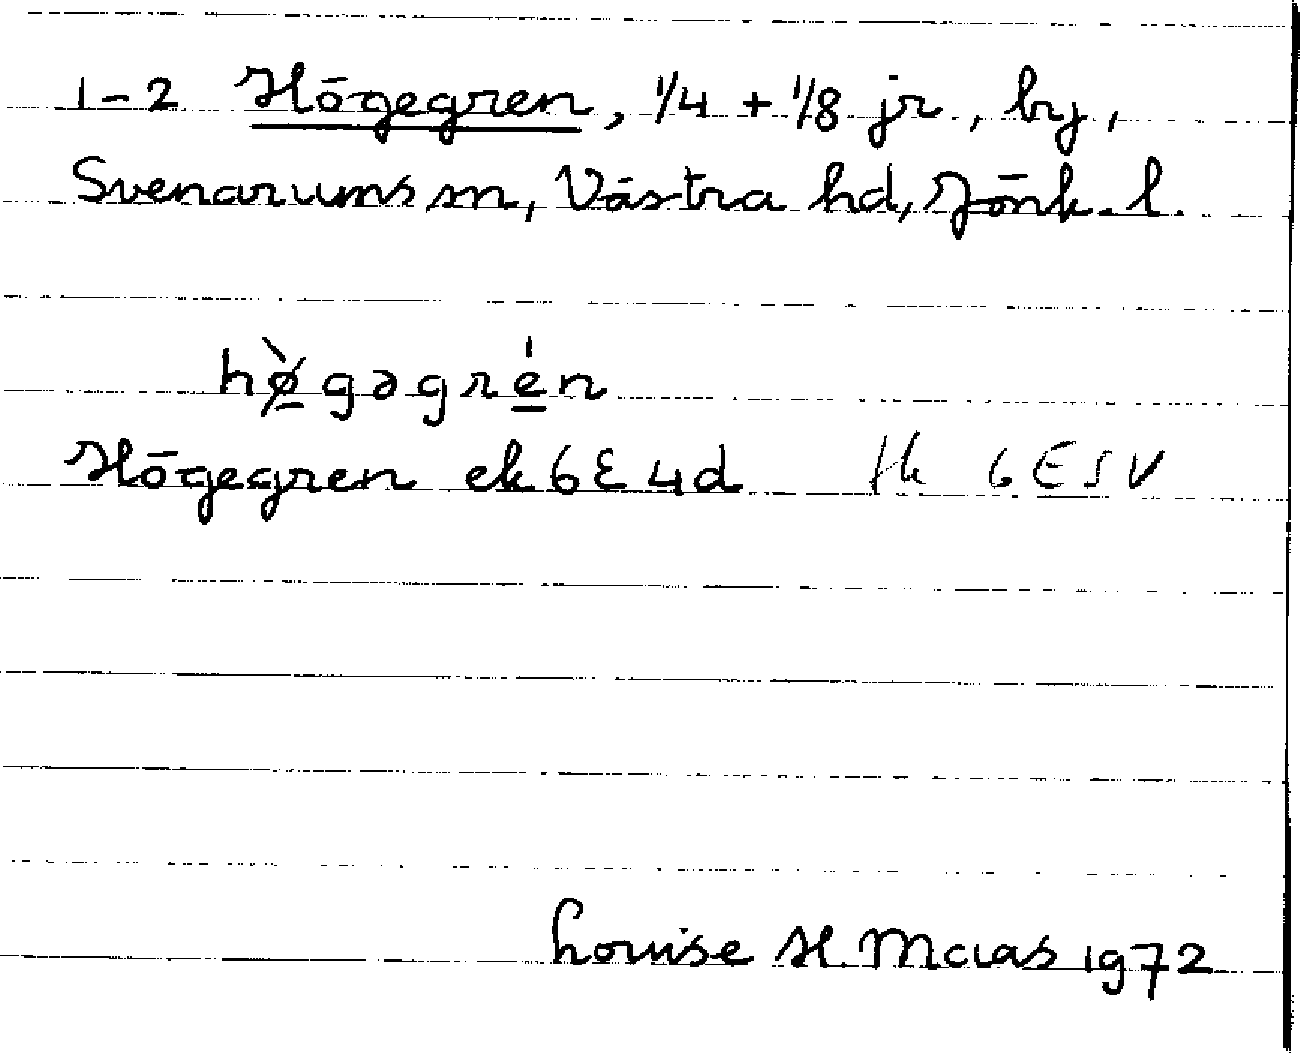 1-2 Högegren, 1/4 + 1/8 jr, by,
Svenarums sn, Västra hd, Jönk. l.
hø̀gəgrén
Högegren ek 6E4d 6E5V
Louise H. Maias 1972